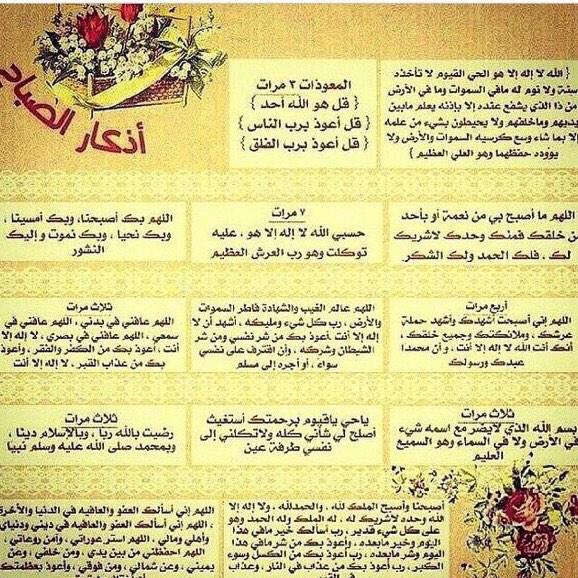 أذكار الصباح
{ الله لا إله إلا هو الحي القيوم لا تأخذه
سنة ولا نوم له مافي السموات وما في الأرض
من ذا الذي يشفع عنده إلا بإذنه يعلم مابين
يديهم وماخلفهم ولا يحيطون بشيء من علمه
إلا بما شاء وسع كرسيه السموات والأرض ولا
يؤوده حفظهما وهو العلي العظيم }
المعوذات ٣ مرات
{ قل هو الله أحد }
{ قل أعوذ برب الناس }
{ قل أعوذ برب الفلق }
اللهم ما أصبح بي من نعمة أو بأحد
من خلقك فمنك وحدك لاشريك
لك ، فلك الحمد ولك الشكر
٧ مرات
حسبي الله لا إله إلا هو ، عليه
توكلت وهو رب العرش العظيم
اللهم بك أصبحنا، وبك أمسينا ،
وبك نحيا ، وبك نموت و إليك
النشور
أربع مرات
اللهم إني أصبحت أشهدك وأشهد حملة
عرشك ، وملائكتك وجميع خلقك ،
أنك أنت الله لا إله إلا أنت ، و أن محمدا
عبدك ورسولك
اللهم عالم الغيب والشهادة فاطر السموات
والأرض ، رب كل شيء ومليكه ، أشهد أن لا
إله إلا أنت .أعوذ بك من شر نفسي ومن شر
الشيطان وشركه ، وأن اقترف على نفسي
سواء ، أو أجره إلى مسلم
ثلاث مرات
اللهم عافني في بدني ، اللهم عافني في
سمعي ، اللهم عافني في بصري ، لا إله إلا
أنت ، أعوذ بك من الكفر والفقر ، وأعوذ
بك من عذاب القبر ، لا إله إلا أنت
ثلاث مرات
بسم الله الذي لايضر مع اسمه شيء
في الأرض ولا في السماء وهو السميع
العليم
ياحي ياقيوم برحمتك أستغيث
أصلح لي شأني كله ولاتكلني إلى
نفسي طرفة عين
ثلاث مرات
رضيت بالله ربا ، وبالإسلام دينا ،
وبمحمد صلى الله عليه وسلم نبيا
أصبحنا وأصبح الملك لله ، والحمدلله ، ولا إله إلا
الله وحده لاشريك له ، له الملك وله الحمد وهو
على كل شيء قدير ، رب أسألك خير مافي هذا
اليوم وخير مابعده ، وأعوذ بك من شر مافي هذا
اليوم وشر مابعده ، رب أعوذ بك من الكسل وسوء
الكبر ، رب أعوذ بك من عذاب في النار ، وعذاب
في القبر
اللهم إني أسألك العفو والعافية في الدنيا والآخرة
، اللهم إني أسألك العفو والعافية في ديني ودنياي
وأهلي ومالي ، اللهم استر عوراتي ، وآمن روعاتي
اللهم احفظني من بين يدي ، ومن خلفي ، وعن
يميني ، وعن شمالي ، ومن فوقي ، وأعوذ بعظمتك